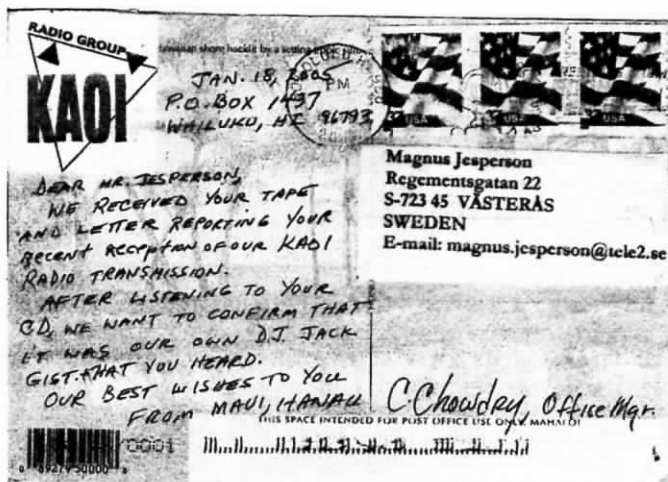 RADIO GROUP
KAOI
hawaiian shore backlit by a setting tropic
JAN. 18, 2005
P.O. BOX 1437
WAILUKU, HI 96793
PM
USA
USA
USA
Magnus Jesperson
Regementsgatan 22
S-723 45 VÄSTERÅS
SWEDEN
E-mail: magnus.jesperson@tele2.se
DEAR MR. JESPERSON,
WE RECEIVED YOUR TAPE
AND LETTER REPORTING YOUR
RECENT RECEPTION OF OUR KAOI
RADIO TRANSMISSION.
AFTER LISTENING TO YOUR
CD, WE WANT TO CONFIRM THAT
IT WAS OUR OWN D.J. JACK
GIST THAT YOU HEARD.
OUR BEST WISHES TO YOU
FROM MAUI, HAWAII
C. Chowdry, Office Mgr.
THIS SPACE INTENDED FOR POST OFFICE USE ONLY. MAHALO!
0001